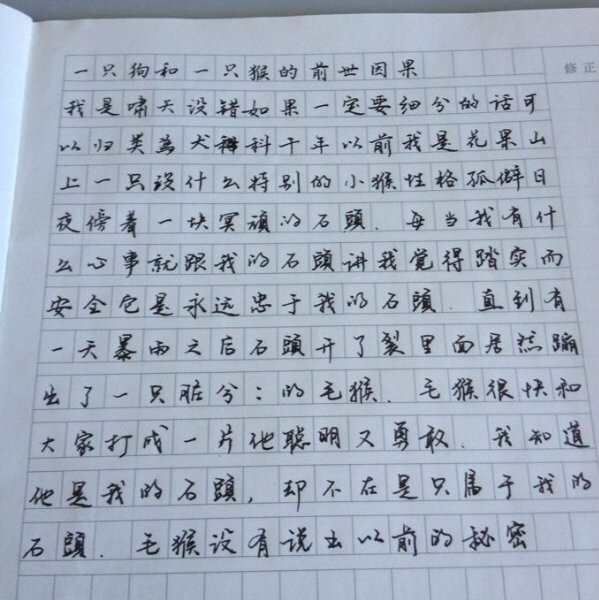 一只狗和一只猴的前世因果
修正
我是啸天没错如果一定要细分的话可
以归类为犬科千年以前我是花果山
上一只没什么特别的小猴性格孤僻日
夜傍着一块冥顽的石頭.每当我有什
么心事就跟我的石頭讲我觉得踏实而
安全它是永远忠于我的石頭.直到有
一天暴雨之后石頭开了裂里面居然蹦
出了一只脏兮:的毛猴.毛猴很快和
大家打成一片他聪明又勇敢.我知道
他是我的石頭,却不在是只属于我的
石頭.毛猴没有说出以前的秘密